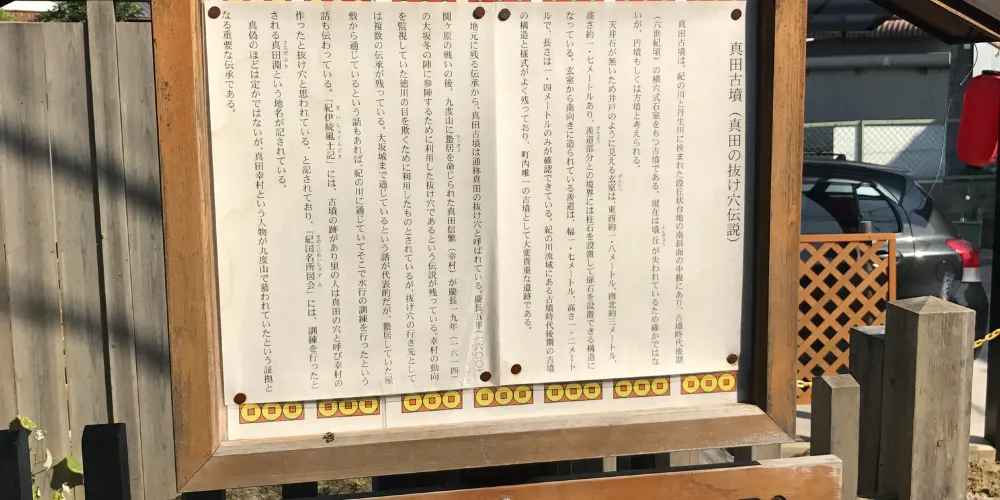 真田古墳（真田の抜け穴伝説）
真田古墳は、紀の川と丹生川に挟まれた段丘状台地の南斜面の中腹にあり、古墳時代後期
（六世紀頃）の横穴式石室をもつ古墳である。現在は墳丘が失われているため確かではな
いが、円墳もしくは方墳と考えられる。
天井石が無いため井戸のように見える玄室は、東西約一・八メートル、南北約三メートル、
高さ約一・七メートルあり、羨道部分との境界には柱石を設置して扉石を設置できる構造に
なっている。玄室から南向きに造られている羨道は、幅一・七メートル、高さ一・二メート
ルで、長さは一・四メートルのみが確認できている。紀の川流域にある古墳時代後期の古墳
の構造と様式がよく残っており、町内唯一の古墳として大変貴重な遺跡である。
地元に残る伝承から、真田古墳は通称真田の抜け穴と呼ばれている。慶長五年（一六〇〇）
関ヶ原の戦いの後、九度山に蟄居を命じられた真田信繁（幸村）が慶長一九年（一六一四）
の大坂冬の陣に参陣するために利用した抜け穴であるという伝説が残っている。幸村の動向
を監視していた徳川の目を欺くために利用したものとされているが、抜け穴の行き先として
は複数の伝承が残っている。大坂城まで通じているという話が代表的だが、蟄居していた屋
敷から通じているという話もあれば、紀の川に通じていてそこで水行の訓練を行ったという
話も伝わっている。『紀伊続風土記』には、古墳の跡があり里の人は真田の穴と呼び幸村の
作ったと抜け穴と思われている、と記されており、『紀国名所図会』には、訓練を行ったと
される真田淵という地名が記されている。
真偽のほどは定かではないが、真田幸村という人物が九度山で慕われていたという証拠と
なる重要な伝承である。